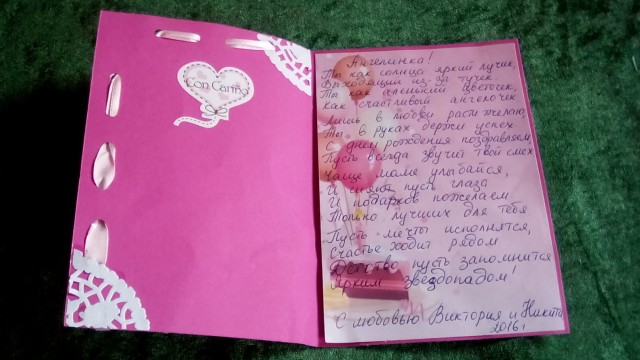 Con Cariño
Ангелинка!
Ты как солнца яркий лучик,
Выходящий из-за тучек.
Ты как аленький цветочек,
Как счастливый ангелочек
Лишь в любви расти желаю,
Ты в руках держи успех
С днем рождения поздравляем,
Пусть всегда звучит твой смех
Чаще маме улыбайся,
И сияют пусть глаза
И подарков пожелаем
Только лучших для тебя
Пусть мечты исполнятся,
Счастье ходит рядом
Детство пусть запомнится
Ярким звездопадом!
С любовью Виктория и Никита
2016г